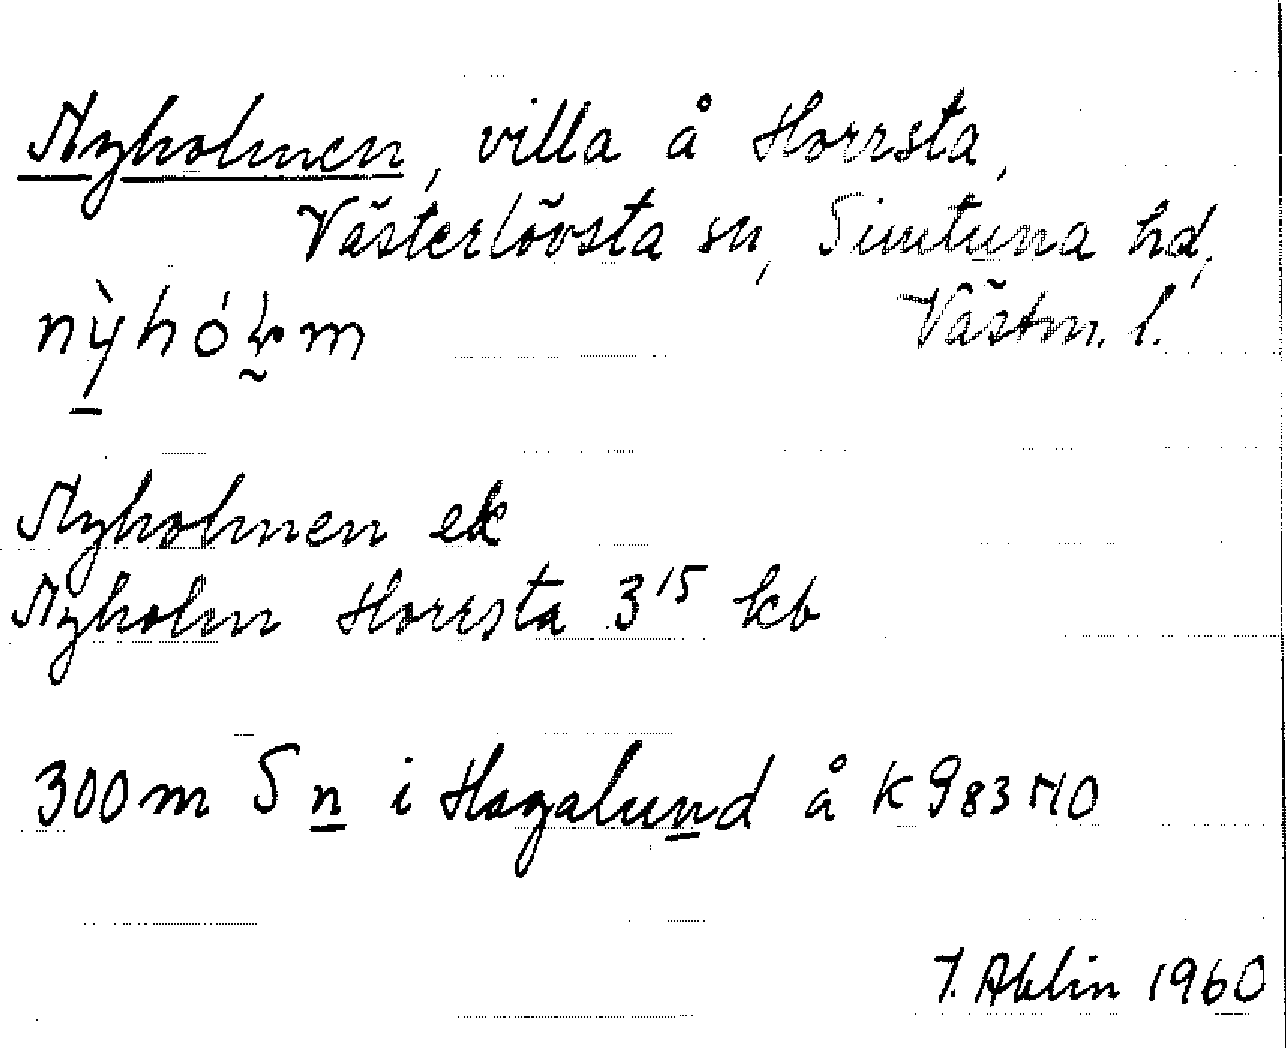 Nyholmen, villa å Horrsta,
Västerlövsta sn, Simtuna hd,
Västm. l.
Nyholmen ek
Nyholm Horrsta 3¹⁵ kb
300 m S n i Hagalund å K 983 NO
Ahlin 1960